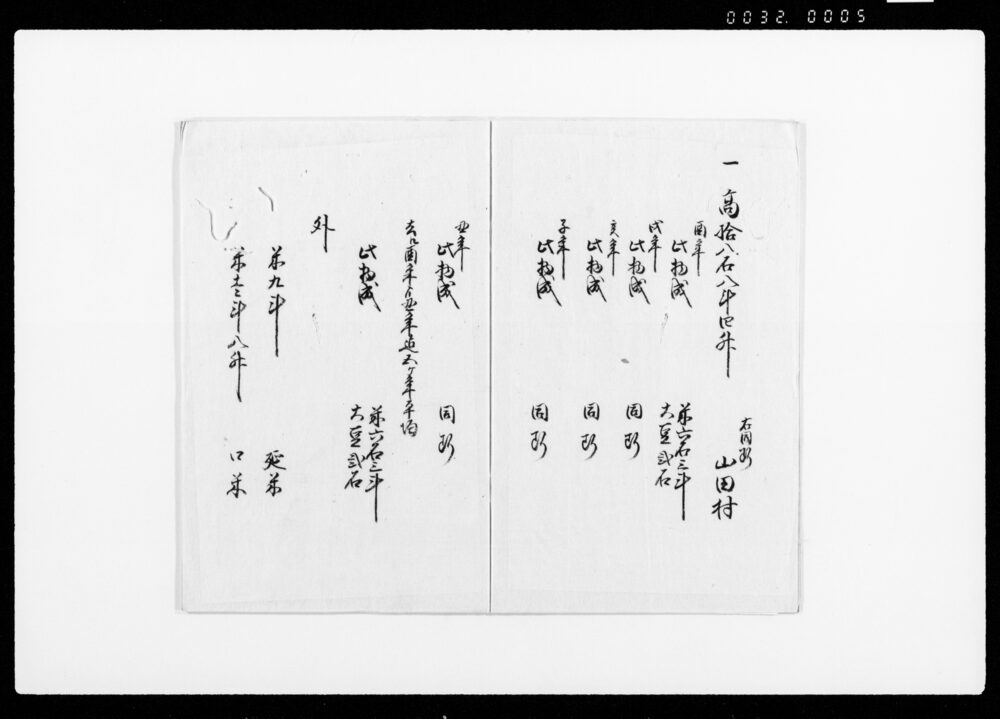 0032. 0005
一 高拾八石八斗四升
右同断 山田村
酉年
此物成 米六石三斗
大豆弐石
戌年
此物成 同断
亥年
此物成 同断
子年
此物成 同断
丑年
此物成 同断
去ル酉年ゟ丑年迄五ケ年平均
此物成 米六石三斗
大豆弐石
外
米九斗 延米
米 斗八升 口米